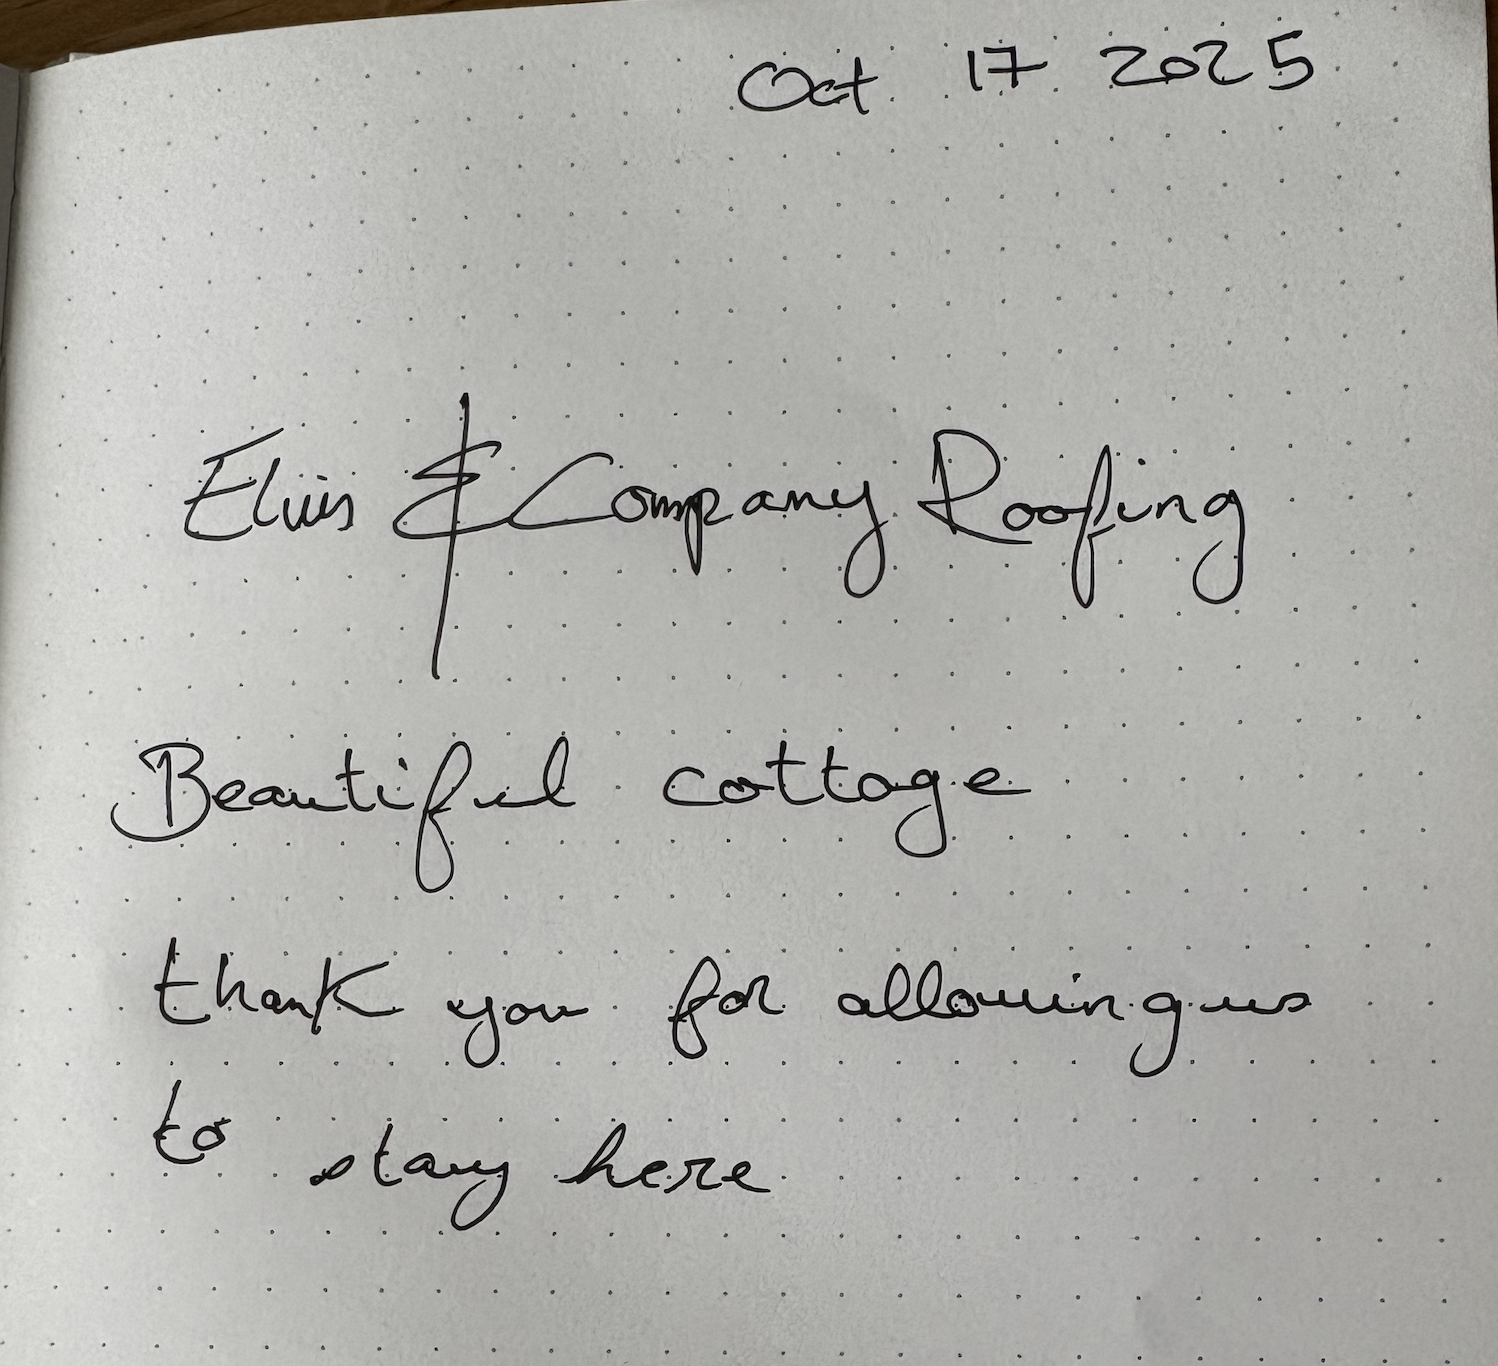 Oct 17 2025
Elvis & Company Roofing
Beautiful cottage
thank you for allowing us
to stay here